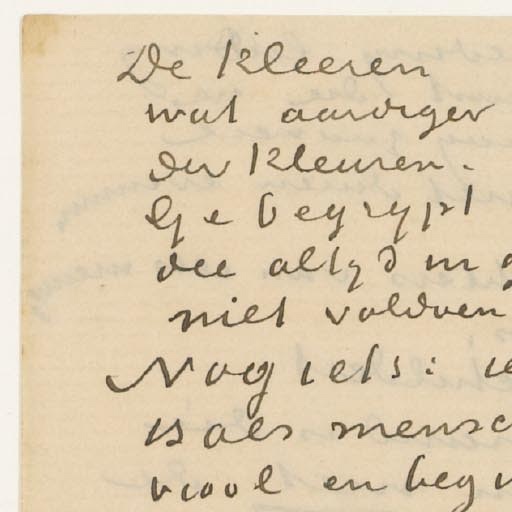 De kleeren
wat aardiger
der kleuren.
Ge begrypt
die altyd in
niet voldoen
Nog iets:
is als mensc
viool en beg